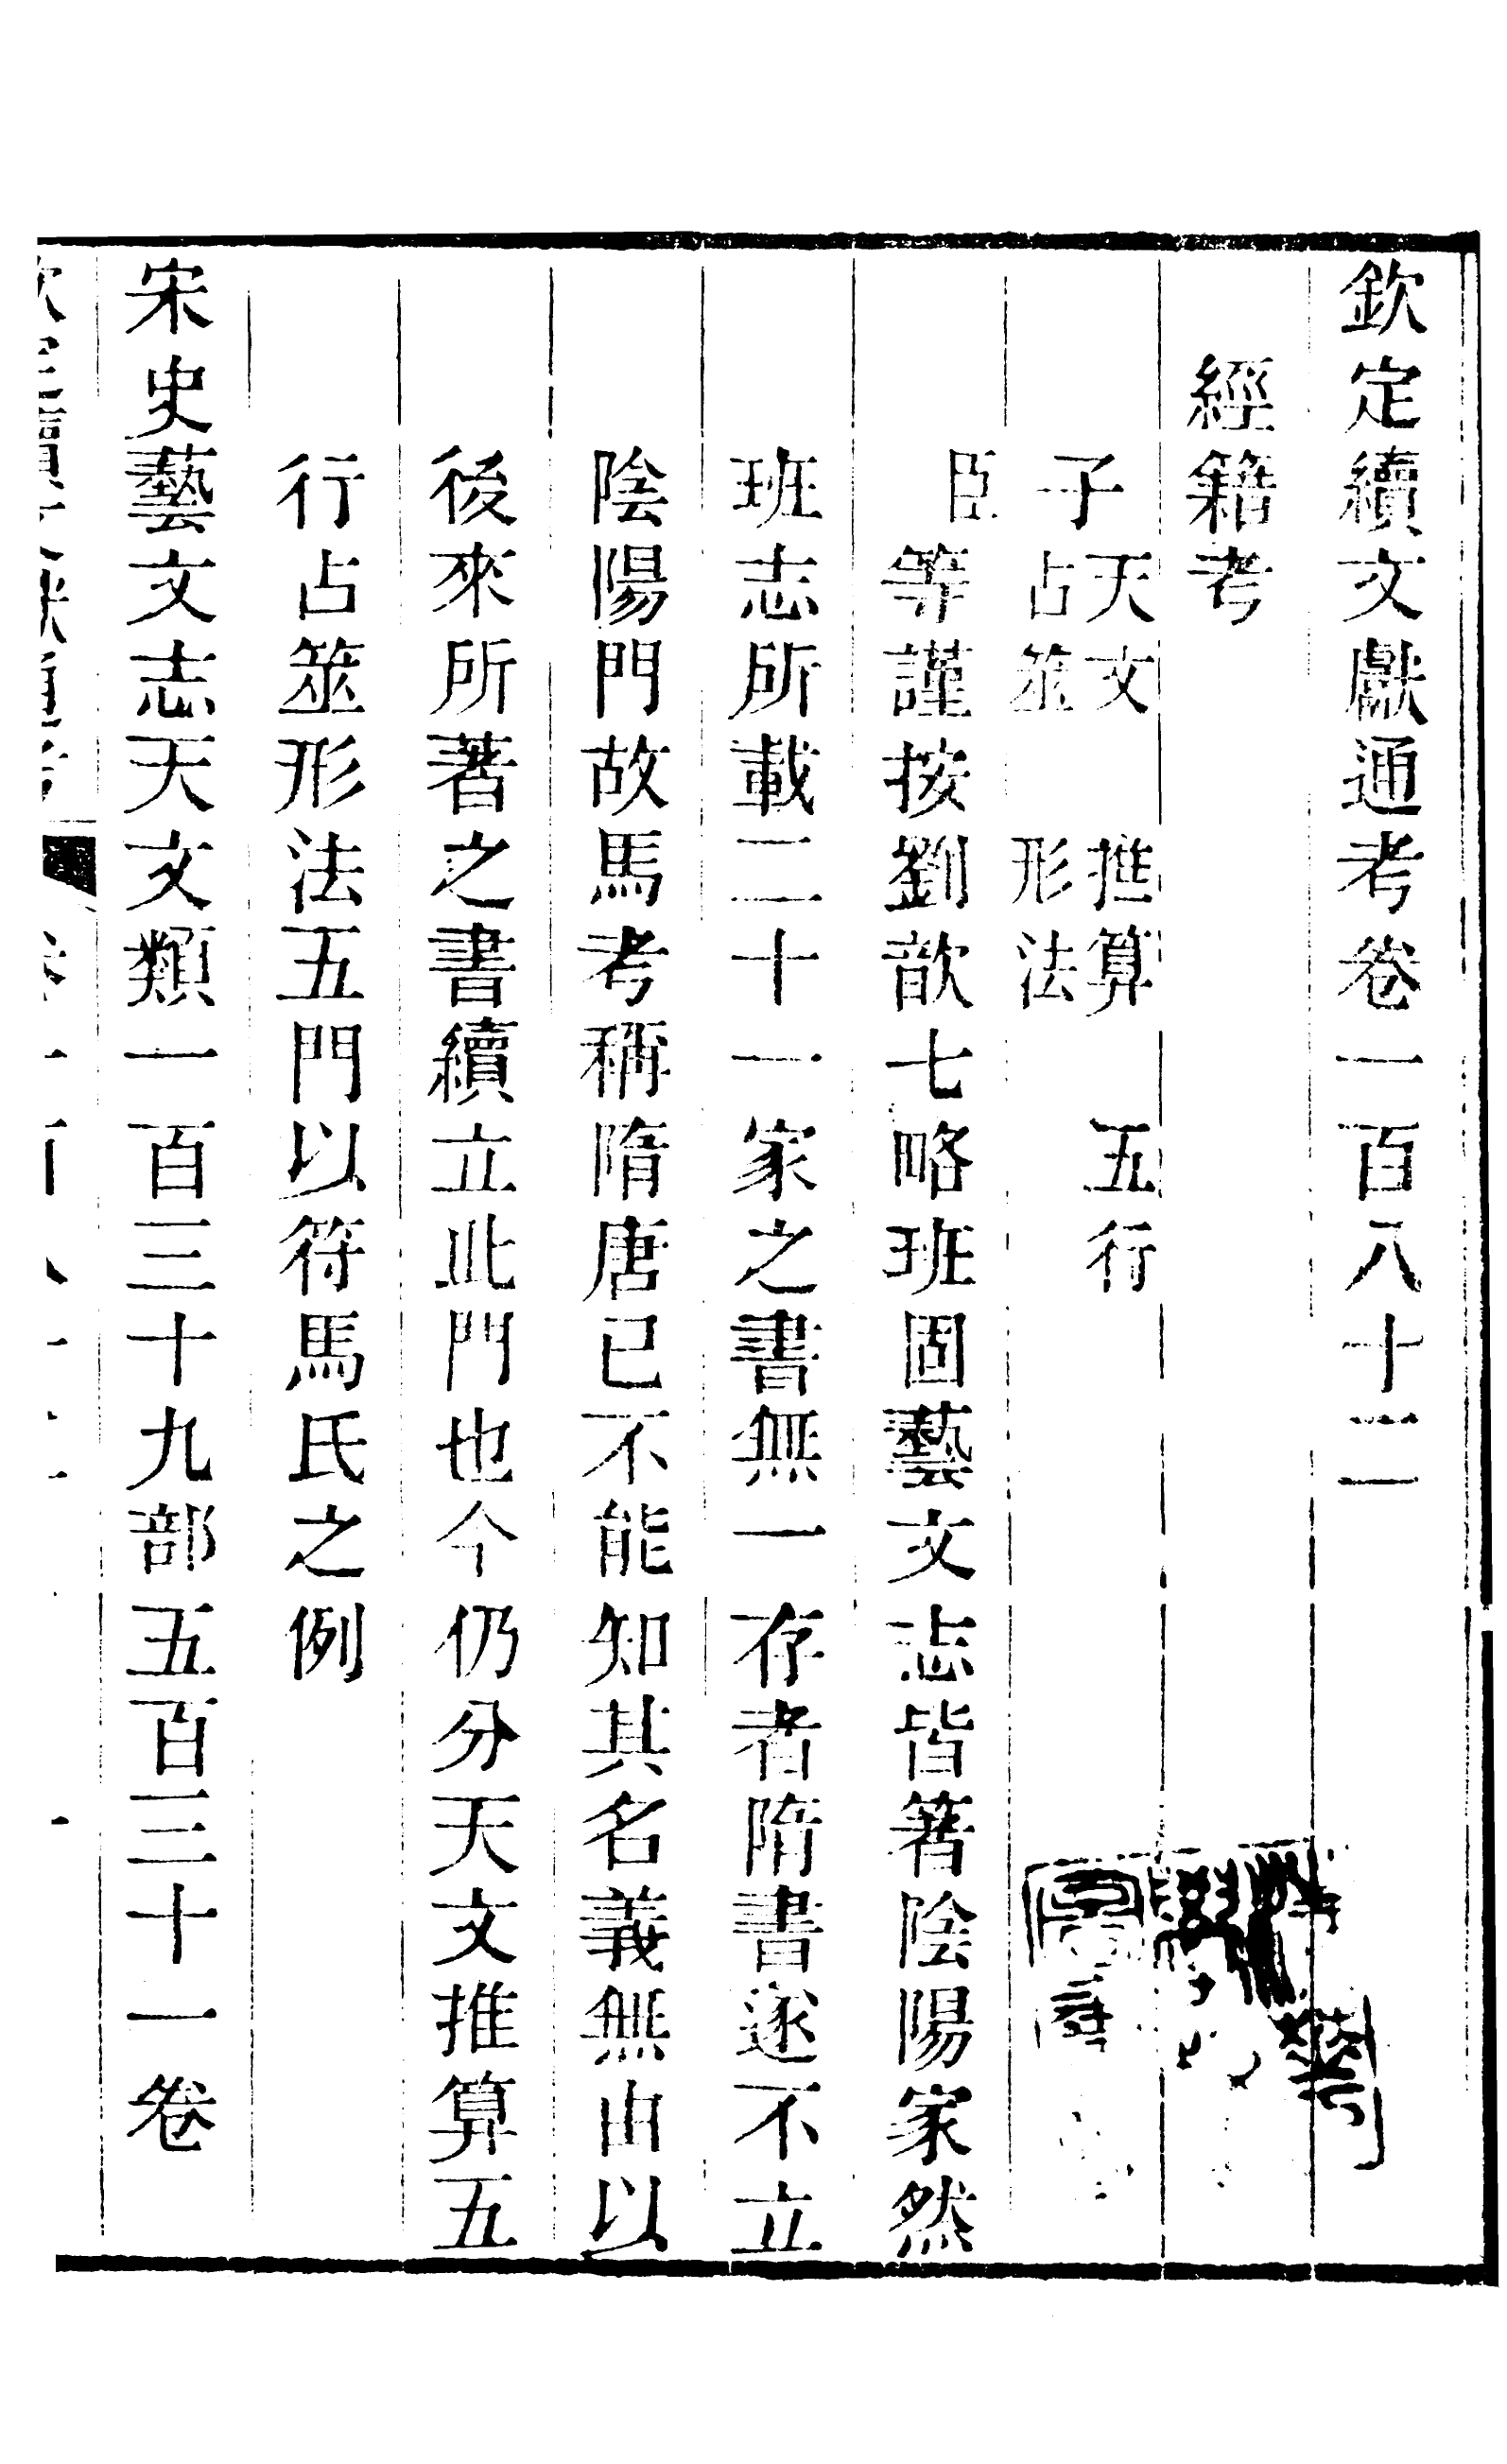 欽定續文獻通考卷一百八十二
經籍考
子天文 推算 五行
占筮 形法
臣等謹按劉歆七略班固藝文志皆著陰陽家然
班志所載二十一家之書無一存者隋書遂不立
陰陽門故馬考稱隋唐已不能知其名義無由以
後來所著之書續立此門也今仍分天文推算五
行占筮形法五門以符馬氏之例
宋史藝文志天文類一百三十九部五百三十一卷